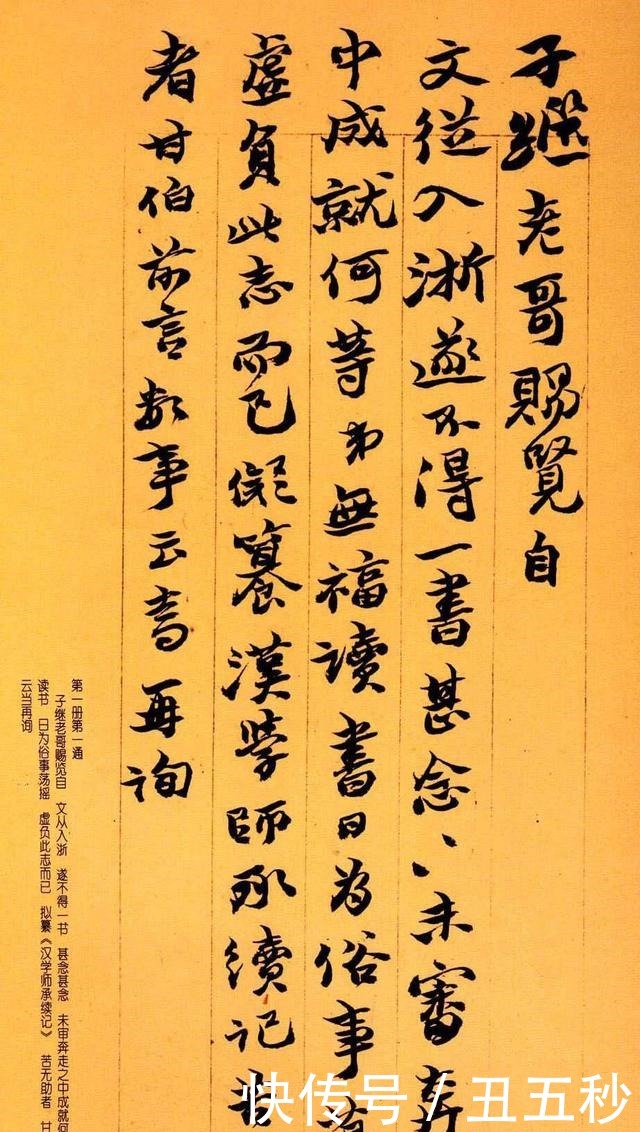 子繼老哥賜覽自
文從入浙遂不得一書甚念〻未審奔
中成就何等弟無福讀書日為俗事
虛負此志而已儗纂漢學師承續記苦
者甘伯前言數事云當再詢
第一册第一通
子继老哥赐览自 文从入浙 遂不得一书 甚念甚念 未审奔走之中成就何
读书 日为俗事荡摇 虚负此志而已 拟纂《汉学师承续记》 苦无助者 甘
云当再询
快传号/丑五秒